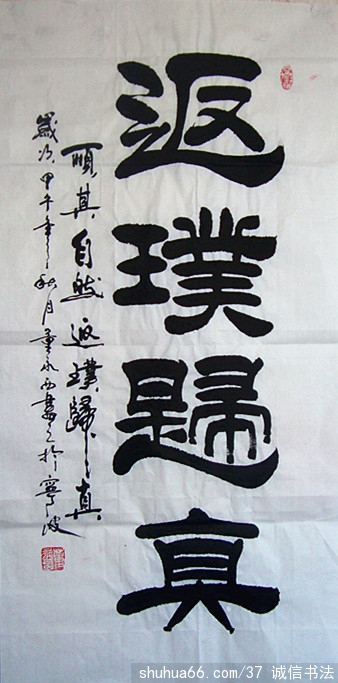 返璞歸真
順其自然返璞歸真
歲次甲午年秋月董永西書於寧波
shuhua66.com/37 诚信书法